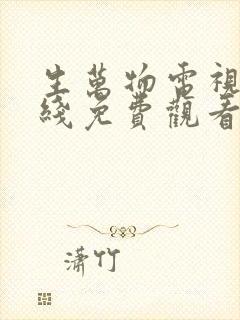 生萬物電視
綫免費觀看
瀟竹